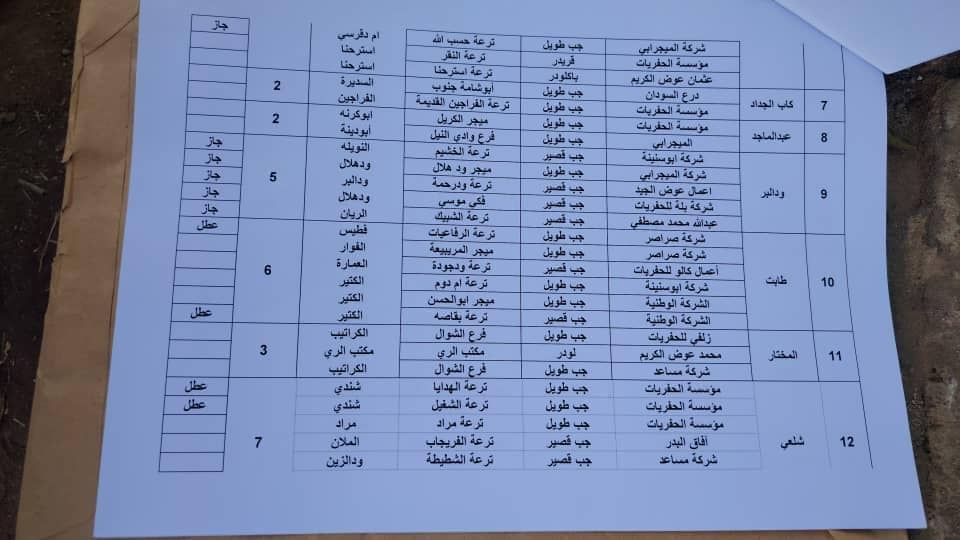 شركة الميجرابي جب طويل ترعة حسب الله ام دقرسي جاز
مؤسسة الحفريات قريدر ترعة النقر استرحنا
عثمان عوض الكريم باكلودر ترعة استرحنا استرحنا
7 كاب الجداد درع السودان جب طويل أبوشامة جنوب السديرة 2
مؤسسة الحفريات جب طويل ترعة الفراجين القديمة الفراجين
8 عبدالماجد مؤسسة الحفريات جب طويل ميجر الكريل ابوكرنه 2
الميجرابي جب طويل فرع وادي النيل أبودينة
9 ودالبر شركة ابوسنينة جب قصير ترعة الخشيم النويله 5 جاز
شركة الميجرابي جب طويل ميجر ود هلال ودهلال جاز
اعمال عوض الجيد جب قصير ترعة ودرحمة ودالبر جاز
شركة بلة للحفريات جب قصير فكي موسي ودهلال جاز
عبدالله محمد مصطفي جب قصير ترعة الشبيك الريان جاز
10 طابت شركة صراصر جب طويل ترعة الرفاعيات قطيس 6 عطل
شركة صراصر جب طويل ميجر المريبيعة الفوار
أعمال كالو للحفريات جب قصير ترعة ودجودة العمارة
شركة ابوسنينة جب طويل ترعة ام دوم الكتير
الشركة الوطنية جب طويل ميجر ابوالحسن الكتير
الشركة الوطنية جب قصير ترعة بقاصه الكتير عطل
11 المختار زلفي للحفريات جب طويل فرع الشوال الكراتيب 3
محمد عوض الكريم لودر مكتب الري مكتب الري
شركة مساعد جب طويل فرع الشوال الكراتيب
12 شلعي مؤسسة الحفريات جب طويل ترعة الهدايا شندي 7 عطل
مؤسسة الحفريات جب طويل ترعة الشغيل شندي عطل
مؤسسة الحفريات جب طويل ترعة مراد مراد
آفاق البدر جب قصير ترعة الفريجاب الملان
شركة مساعد جب قصير ترعة الشطيطة ودالزين